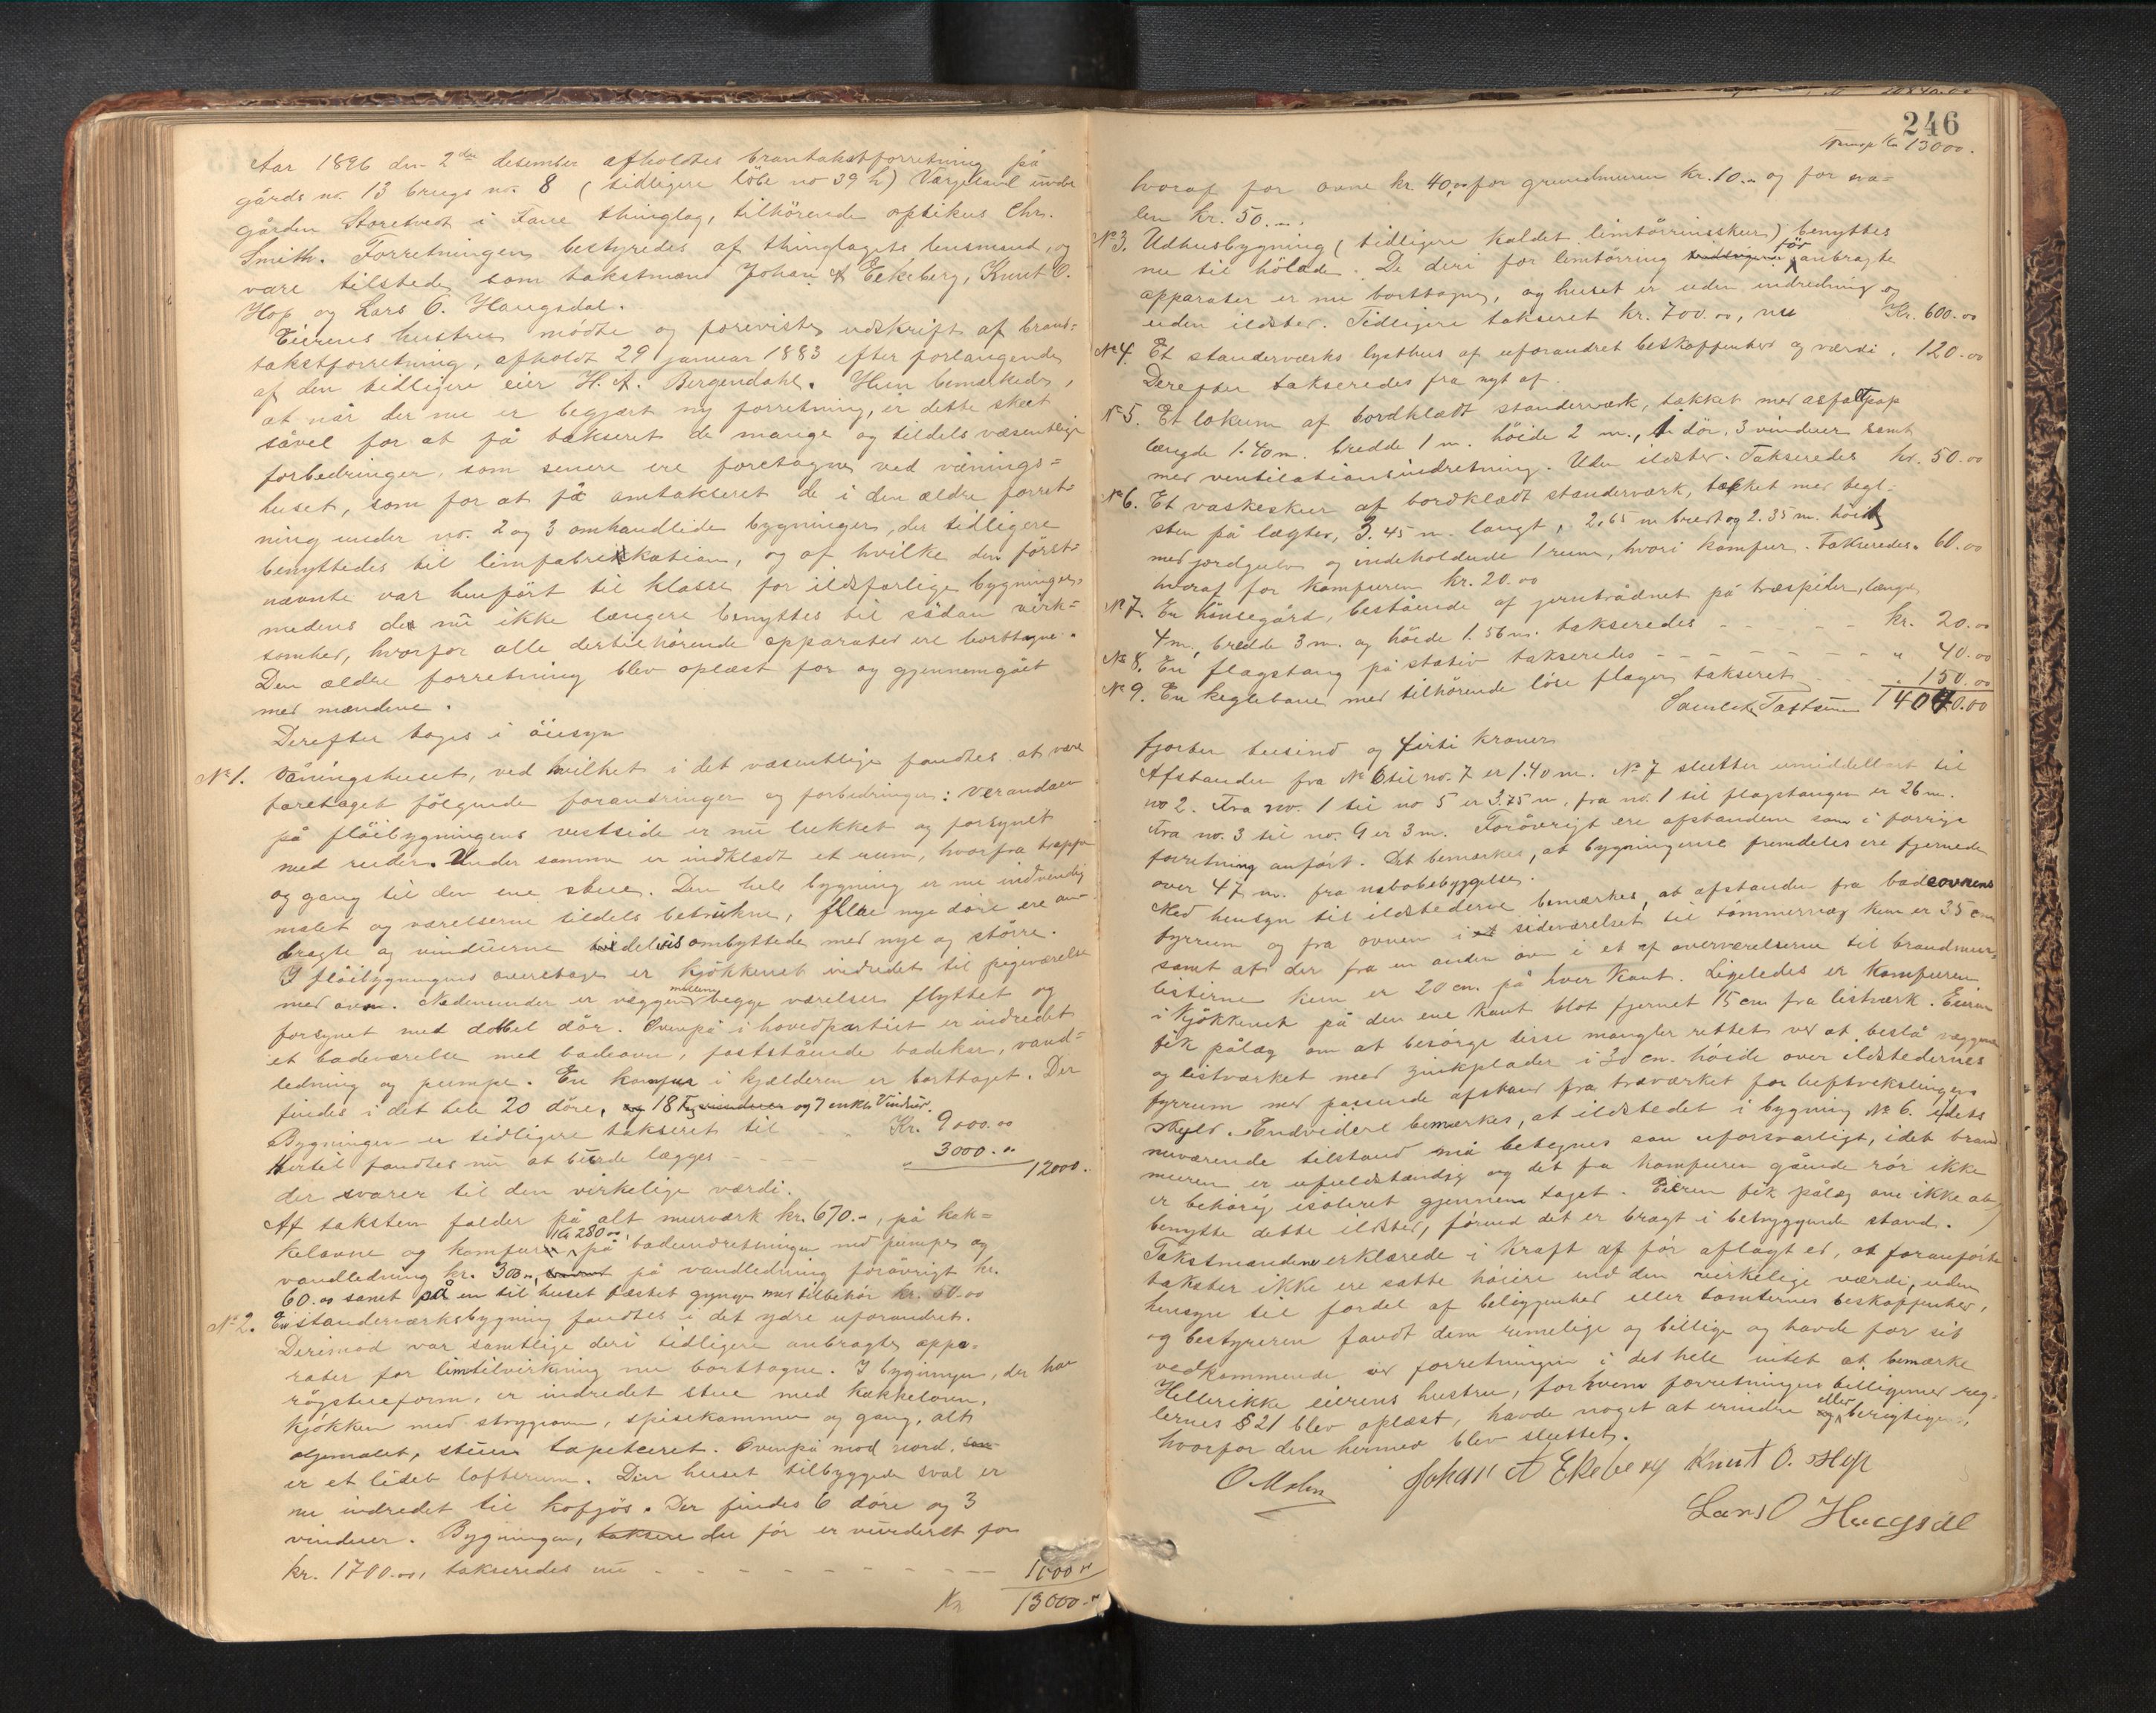 Aar 1896 den 2den desember afholdtes brantakstforretning på
gårds no. 13 brugs no. 8 (tidligere löbe no 39 h) Varjelavl under
gården Storetvedt i Fane thinglag, tilhörende optikus Chr.
Smith. Forretningen bestyredes af thinglagets lensmand, og
vare tilstede som takstmænd Johan A Eekeberg, Knut O.
Hop og Lars O. Haugsdal.
Eierens hustru mödte og foreviste udskrift af brand-
takstforretning, afholdt 29 januar 1883 efter forlangende
af den tidligere eier H. A. Bergendahl. Hun bemærkede,
at når der nu er begjært ny forretning, er dette skeet
såvel for at få takseret de mange og tildels væsentlige
forbedringer, som senere ere foretagne ved vånings-
huset, som for at få omtakseret de i den ældre forret-
ning under no. 2 og 3 omhandlede bygninger, der tidligere
benyttedes til limfabrikkation, og af hvilke den först-
nævnte var henfört til klasse for ildsfarlige bygninger,
medens de nu ikke længere benyttes til sådan virk-
somhed, hvorfor alle dertilhörende apparater ere borttagne.
Den ældre forretning blev oplæst for og gjennemgået
med mændene.
Derefter toges i öiesyn
No 1. Våningshuset, ved hvilket i det væsentlige fandtes at være
foretaget fölgende forandringer og forbedringer: Verandaen
på flöibygningens vestside er nu lukket og forsynet
med ruder. Under samme er indklædt et rum, hvorfra trappe
og gang til den ene stue. Den hele bygning er nu indvendig
malet og værelserne tildels betrukne, flere nye döre ere an-
bragte og vinduerne tildelvis ombyttede med nye og större.
I flöibygningens overetage er kjökkenet indredet til pigeværelse
med ovn. Nedenunder er væggen mellem begge værelser flyttet og
forsynet med dobbel dör. Ovenpå i hovedpartiet er indredet
et badeværelse med badeovn, faststående badekar, vand-
ledning og pumpe. En komfur i kjælderen er borttaget. Der
findes i det hele 20 döre, og 18 Fg vinduer og 7 enkle Vinduer.
Bygningen er tidligere takseret til Kr. 9000.00
Hertil fandtes nu at burde lægges " 3000.00 12000.
der svarer til den virkelige værdi.
Af taksten falder på alt murværk kr. 670.-, på kak-
kelovne og komfure Kr 280.00, på badeindretningen med pumpe og
vandledning kr. 300.-, samt på vandledning forövrigt kr.
60.00 samt på en til huset fæstet gynge med tilbehör kr. 60.00
No 2. En standerværksbygning fandtes i det ydre uforandret.
Derimod var samtlige deri tidligere anbragte appa-
rater for limtilvirkning nu borttagne. I bygningen, der har
rögstueform, er indredet stue med kakkelovn,
kjökken med strygeovn, spisekammer og gang, alt
oljemalet, stuen tapetseret. Ovenpå mod nord, som
er et lidet loftsrum. Den huset tilbyggede sval er
nu indredet til kofjös. Der findes 6 döre og 3
vinduer. Bygningen, taksere der för er vurderet for
kr. 1700.00, takseredes nu 1000.00
Kr 13000.00
246
Transp Kr 13000.
hvoraf for ovne kr. 40,00 for grundmuren kr. 10.- og for sva-
len kr. 50.-.
No 3. Udhusbygning (tidligere kaldet limtörrinsskur) benyttes
nu til hölade. De deri for limtörring tidligere för anbragte
apparater er nu borttagne, og huset er uden indredning og
uden ildsted. Tidligere takseret kr. 700.00, nu Kr. 600.00
No 4. Et standerværks lysthus af uforandret beskaffenhed og værdi . 120.00
Derefter takseredes fra nyt af
No 5. Et lokum af bordklædt standerværk, takket med asfaltpap
længde 1.40 m. bredde 1 m. höide 2 m., 1 dör, 3 vinduer samt
med ventilationsindretning. Uden ildsted. Takseredes kr. 50.00
No 6. Et vaskeskur af bordklædt standerværk, tækket med tegl-
sten på lægter, 3.45 m. langt, 2.65 m bredt og 2.35 m. höit
med jordgulv og indeholdende 1 rum, hvori komfur. Takseredes " 60.00
hvoraf for komfuren kr. 20.00
No 7. En hönsegård, bestående af jerntrådnet på træspiler, længde
4 m, bredde 3 m. og höide 1.56 m. takseredes kr. 20.00
No 8. En flagstang på stativ takseredes " 40.00
No 9. En keglebane med tilhörende löse flager takseret " 150.00
Samlede Taxtsum 14040.00
fjorten tusind og firti kroner
Afstanden fra No 6 til no. 7 er 1.40 m. No 7 slutter umiddelbart til
no 2. Fra no. 1 til no 5 er 3.75 m, fra no. 1 til flagstangen er 26 m.
Fra no. 3 til no. 9 er 3 m. Foröverigt ere afstandene som i forrige
forretning anfört. Det bemærkes, at bygningerne fremdeles ere fjernede
over 47 m. fra nabobebyggelse.
Med hensyn til ildstederne bemærkes, at afstanden fra badeovnens
fyrrum og fra ovnen i et sideværelset til tömmervæg kun er 35 cm
samt at der fra en anden ovn i et af overværelserne til brandmur-
listerne kun er 20 cm. på hver kant. Ligeledes er komfuren
i kjökkenet på den ene kant blot fjernet 15 cm fra listværk. Eieren
fik pålæg om at besörge disse mangler rettet ved at beslå væggene
og listværket med zinkplader i 30 cm. höide over ildstedernes
fyrrum med passende afstand fra træværket for luftvekslingens
skyld. Endvidere bemærkes, at ildstedet i bygning No 6. i dets
nuværende tilstand må betegnes som uforsvarligt, idet brand-
muren er ufuldstændig og det fra komfuren gående rör ikke
er behörig isoleret gjennem taget. Eieren fik pålæg om ikke at
benytte dette ildsted, förend det er bragt i betryggende stand.
Takstmændene erklærede i kraft af för aflagt ed, at foranförte
takster ikke ere satte höiere end den virkelige værdi, uden
hensyn til fordel af beliggenhed eller tomternes beskaffenhed,
og bestyreren fandt dem rimelige og billige og havde for sit
vedkommende ved forretningen i det hele intet at bemærke
Hellerikke eierens hustru, for hvem forretningen tilligemed reg-
lernes § 21 blev oplæst, havde noget at erindre og eller berigtige,
hvorfor den hermed blev sluttet.
O. Mohn Johan A Ekeberg Knut O. Hop
Lars O Haugsdal